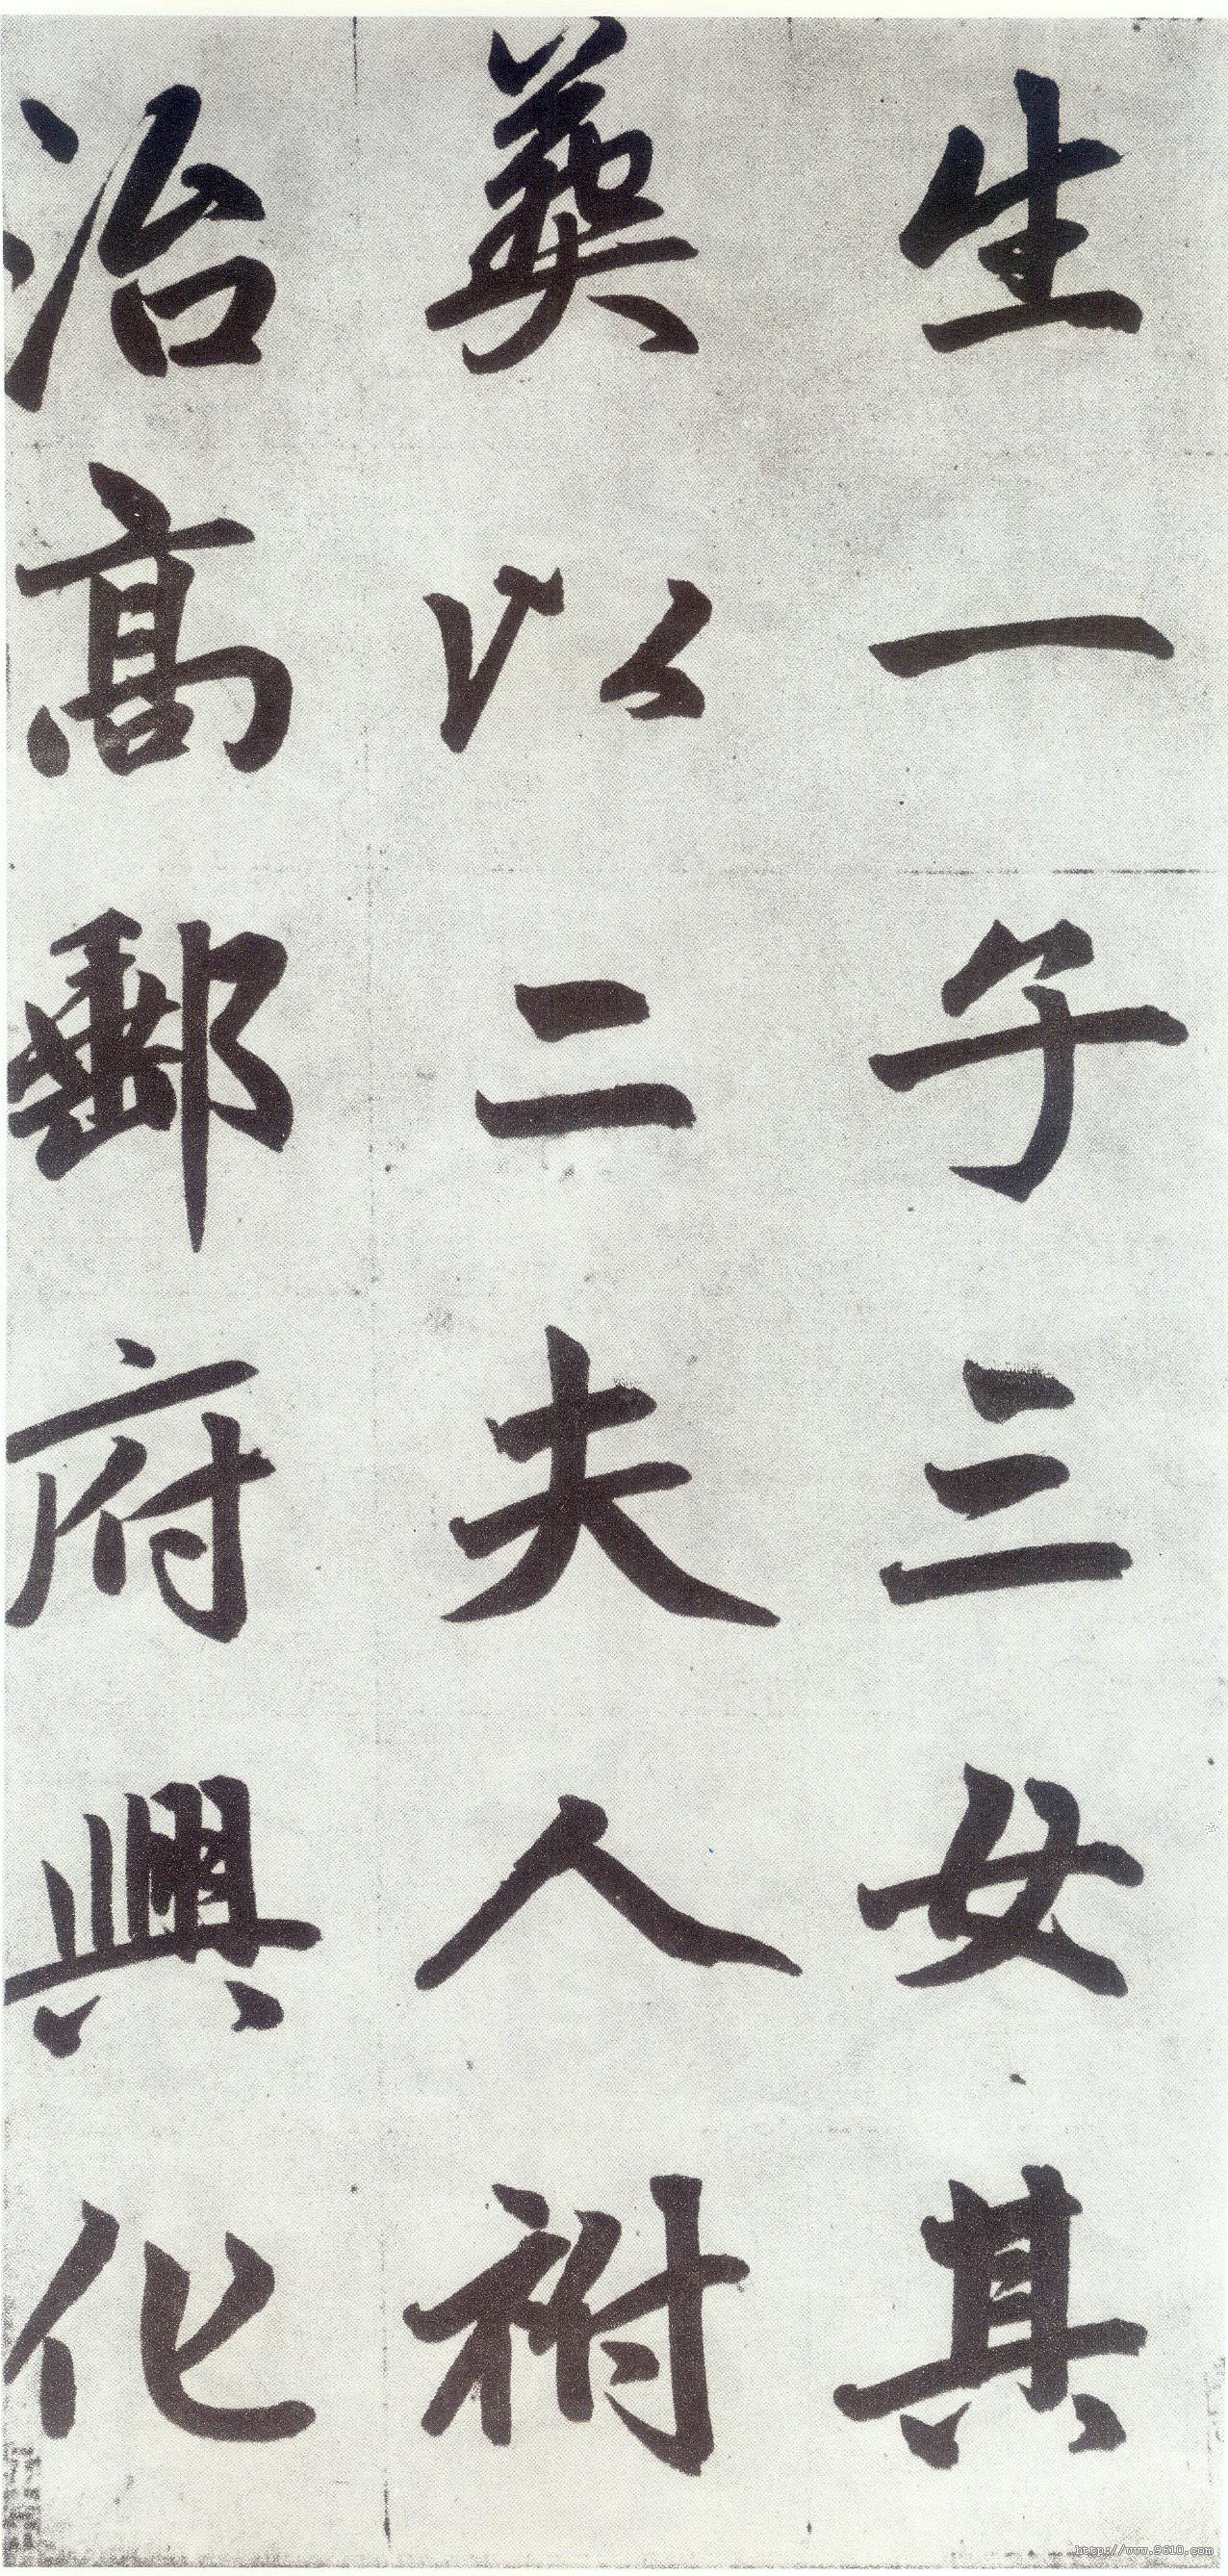 生一子三女其
葬以二夫人祔
治高郵府興化
http://www.9610.com